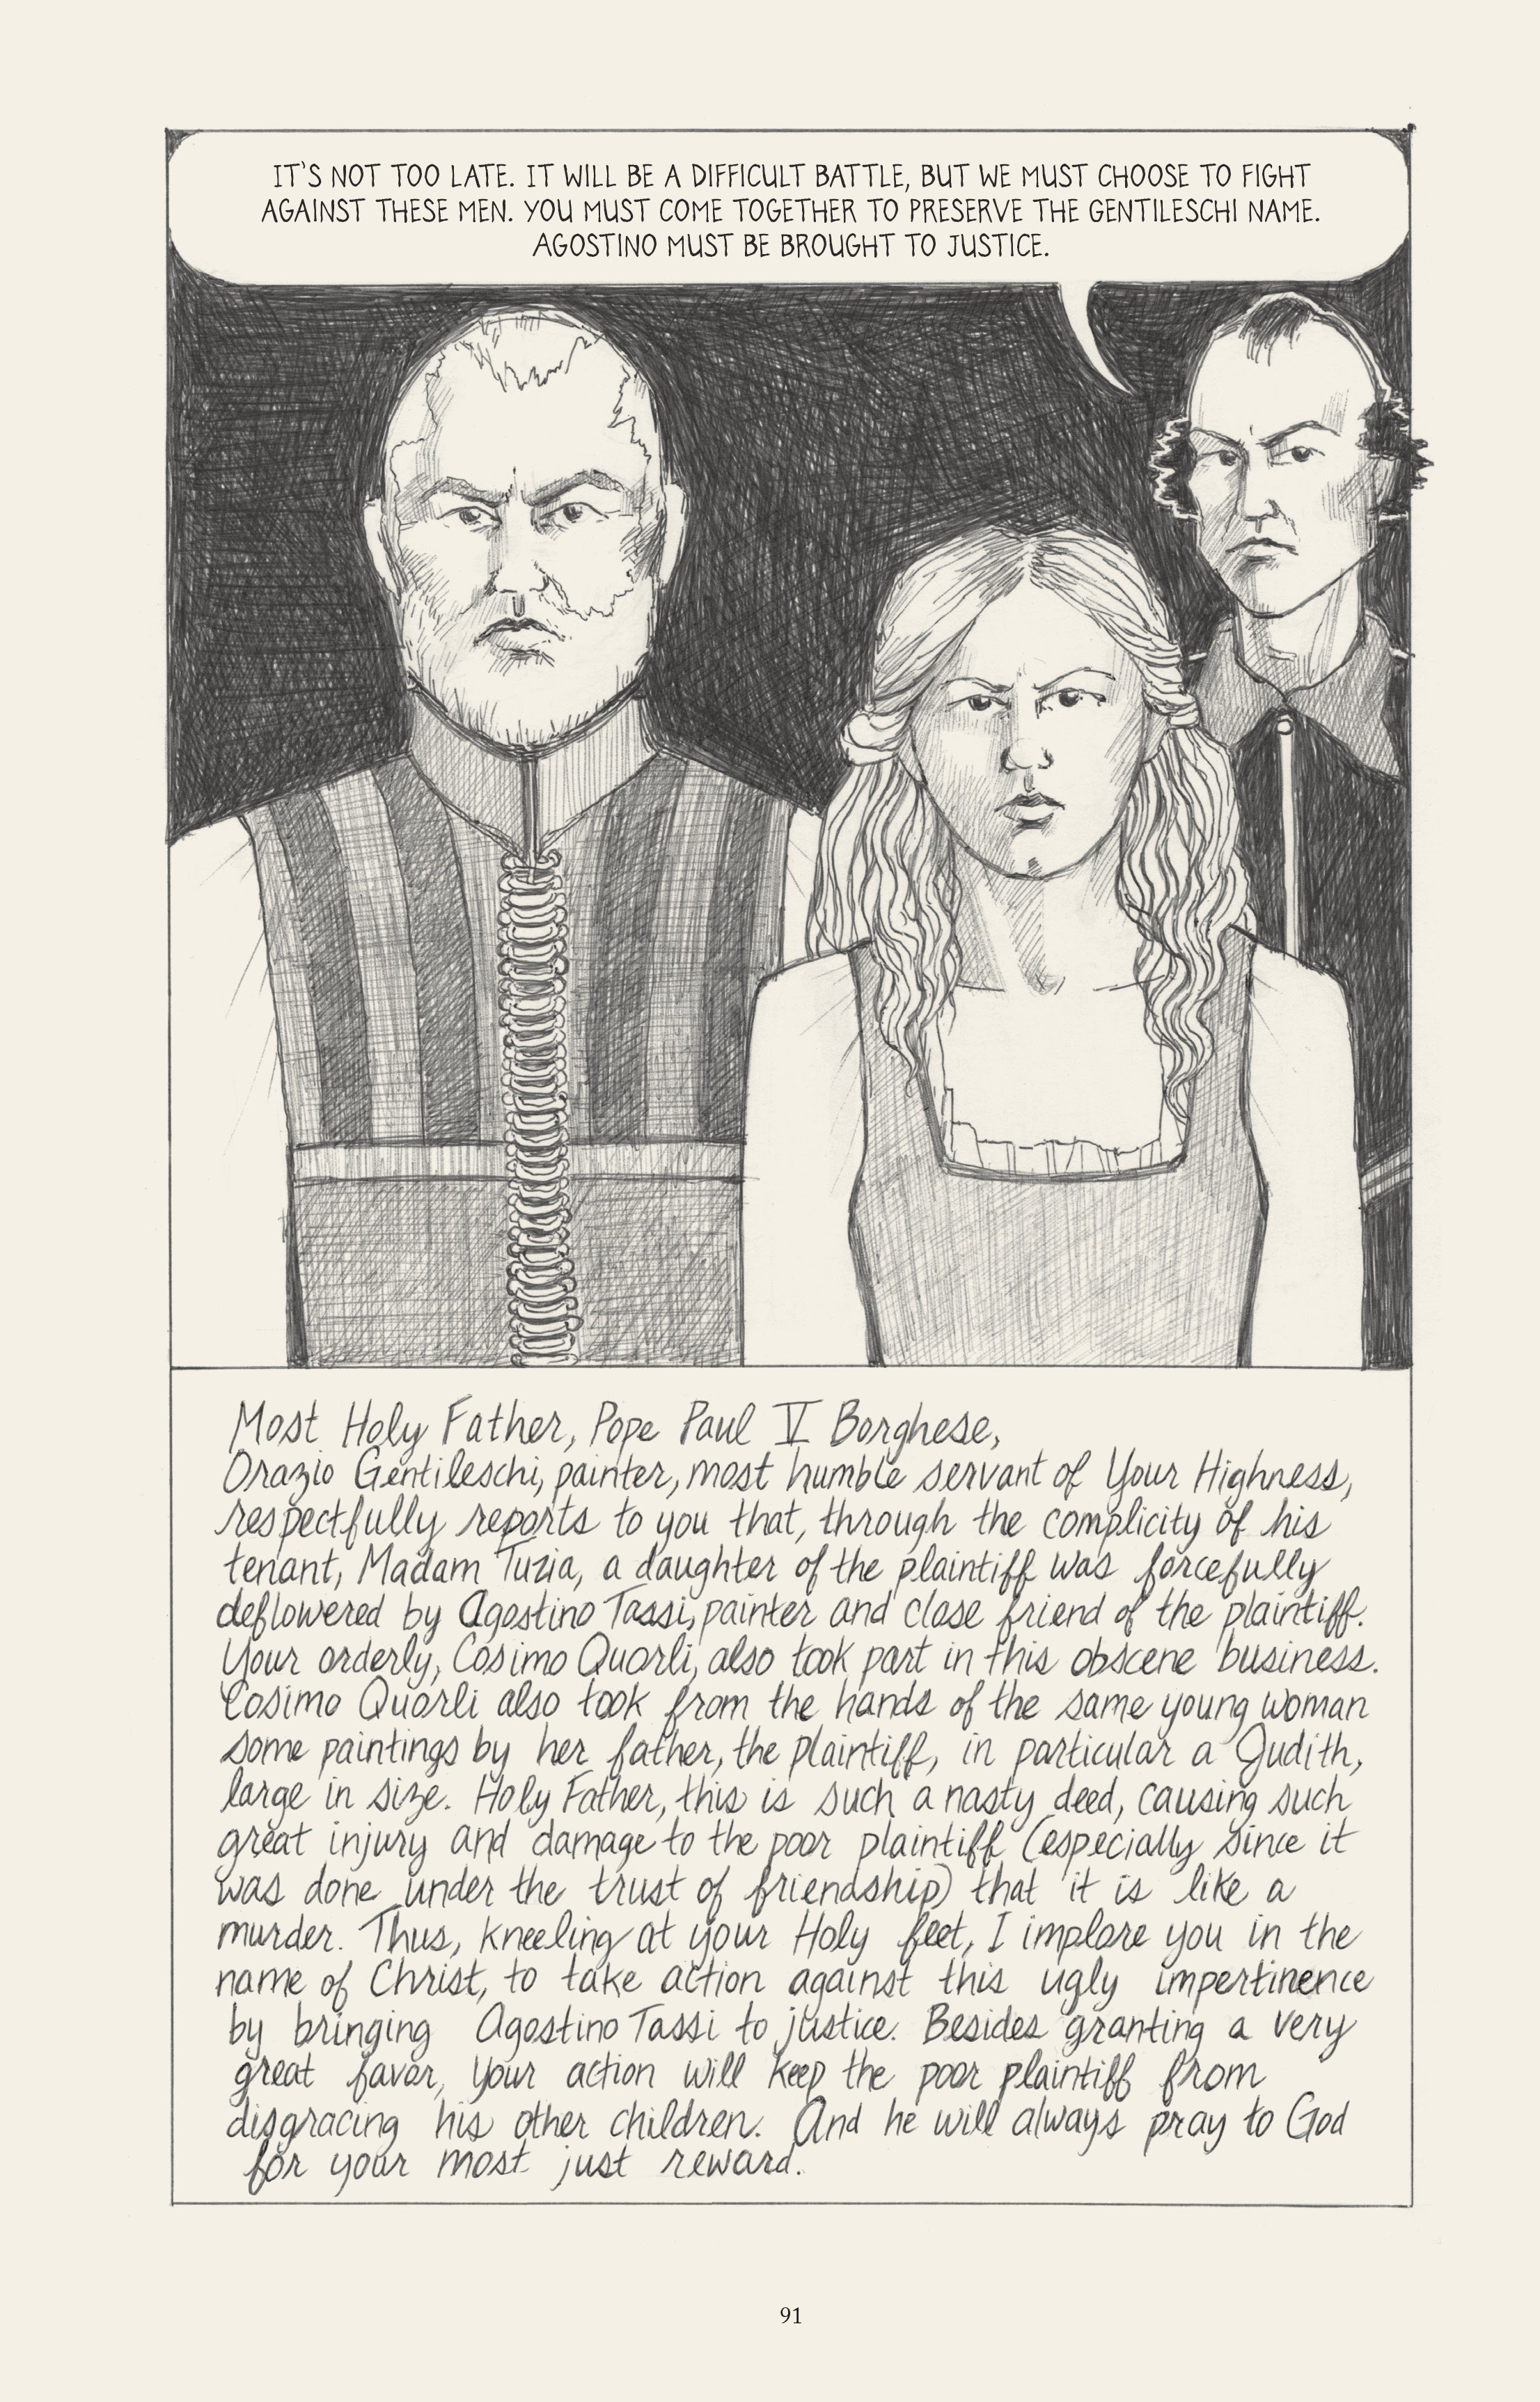 IT'S NOT TOO LATE. IT WILL BE A DIFFICULT BATTLE, BUT WE MUST CHOOSE TO FIGHT
AGAINST THESE MEN. YOU MUST COME TOGETHER TO PRESERVE THE GENTILESCHI NAME.
AGOSTINO MUST BE BROUGHT TO JUSTICE.
Most Holy Father, Pope Paul V Borghese,
Orazio Gentileschi, painter, most humble servant of Your Highness,
respectfully reports to you that, through the complicity of his
tenant, Madam Tuzia, a daughter of the plaintiff was forcefully
deflowered by Agostino Tassi, painter and close friend of the plaintiff.
Your orderly, Cosimo Quorli, also took part in this obscene business.
Cosimo Quorli also took from the hands of the same young woman
some paintings by her father, the plaintiff, in particular a Judith,
large in size. Holy Father, this is such a nasty deed, causing such
great injury and damage to the poor plaintiff (especially since it
was done under the trust of friendship) that it is like a
murder. Thus, kneeling at your Holy feet, I implore you in the
name of Christ, to take action against this ugly impertinence
by bringing Agostino Tassi to justice. Besides granting a very
great favor, your action will keep the poor plaintiff from
disgracing his other children. And he will always pray to God
for your most just reward.
91